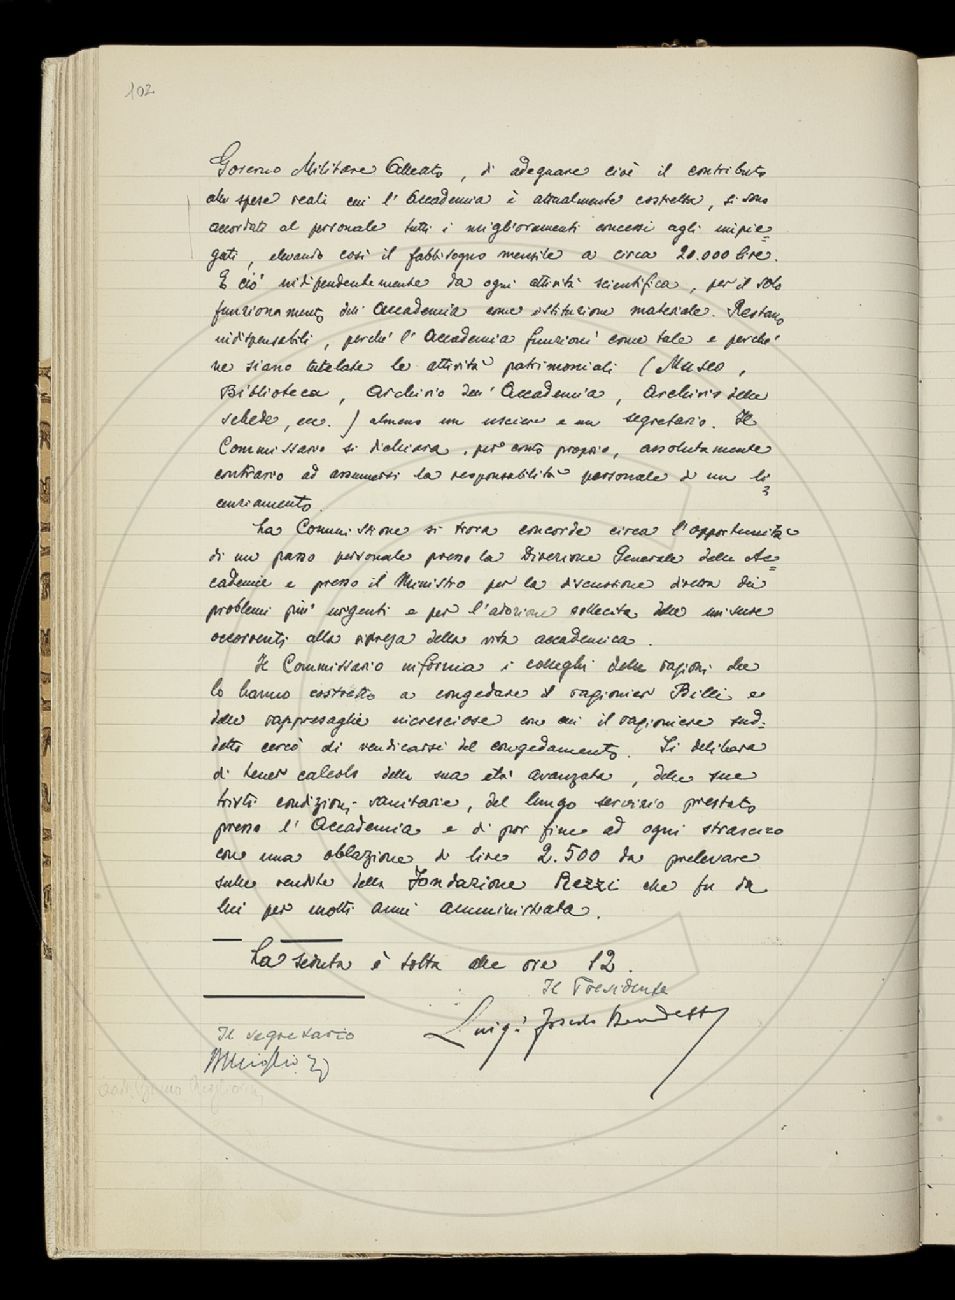 102
Governo Militare Alleato, di adeguare cioè il contributo
alle spese reali cui l'Accademia è attualmente costretta, si sono
accordati al personale tutti i miglioramenti concessi agli impie=
gati, elevando così il fabbisogno mensile a circa 20.000 lire.
E ciò indipendentemente da ogni attività scientifica, per il solo
funzionamento dell'Accademia come istituzione materiale. Restano
indispensabili, perché l'Accademia funzioni come tale e perché
ne siano tutelate le attività patrimoniali (Museo,
Biblioteca, Archivio dell'Accademia, Archivio delle
schede, ecc.) almeno un usciere e un segretario. Il
Commissario si dichiara, per conto proprio, assolutamente
contrario ad assumersi la responsabilità personale di un li=
cenziamento.
La Commissione si trova concorde circa l'opportunità
di un passo personale presso la Direzione Generale delle Ac=
cademie e presso il Ministro per la discussione diretta dei
problemi più urgenti e per l'adozione sollecita delle misure
occorrenti alla ripresa della vita accademica.
Il Commissario informa i colleghi delle ragioni che
lo hanno costretto a congedare il ragionier Billi e
delle rappresaglie incresciose con cui il ragioniere sud=
detto cercò di vendicarsi del congedamento. Si delibera
di tener calcolo della sua età avanzata, delle sue
tristi condizioni sanitarie, del lungo servizio prestato
presso l'Accademia e di por fine ad ogni strascico
con una oblazione di lire 2.500 da prelevare
sulle rendite della Fondazione Rezzi che fu da
lui per molti anni amministrata.
La seduta è tolta alle ore 12.
Il Presidente
Luigi
Il segretario